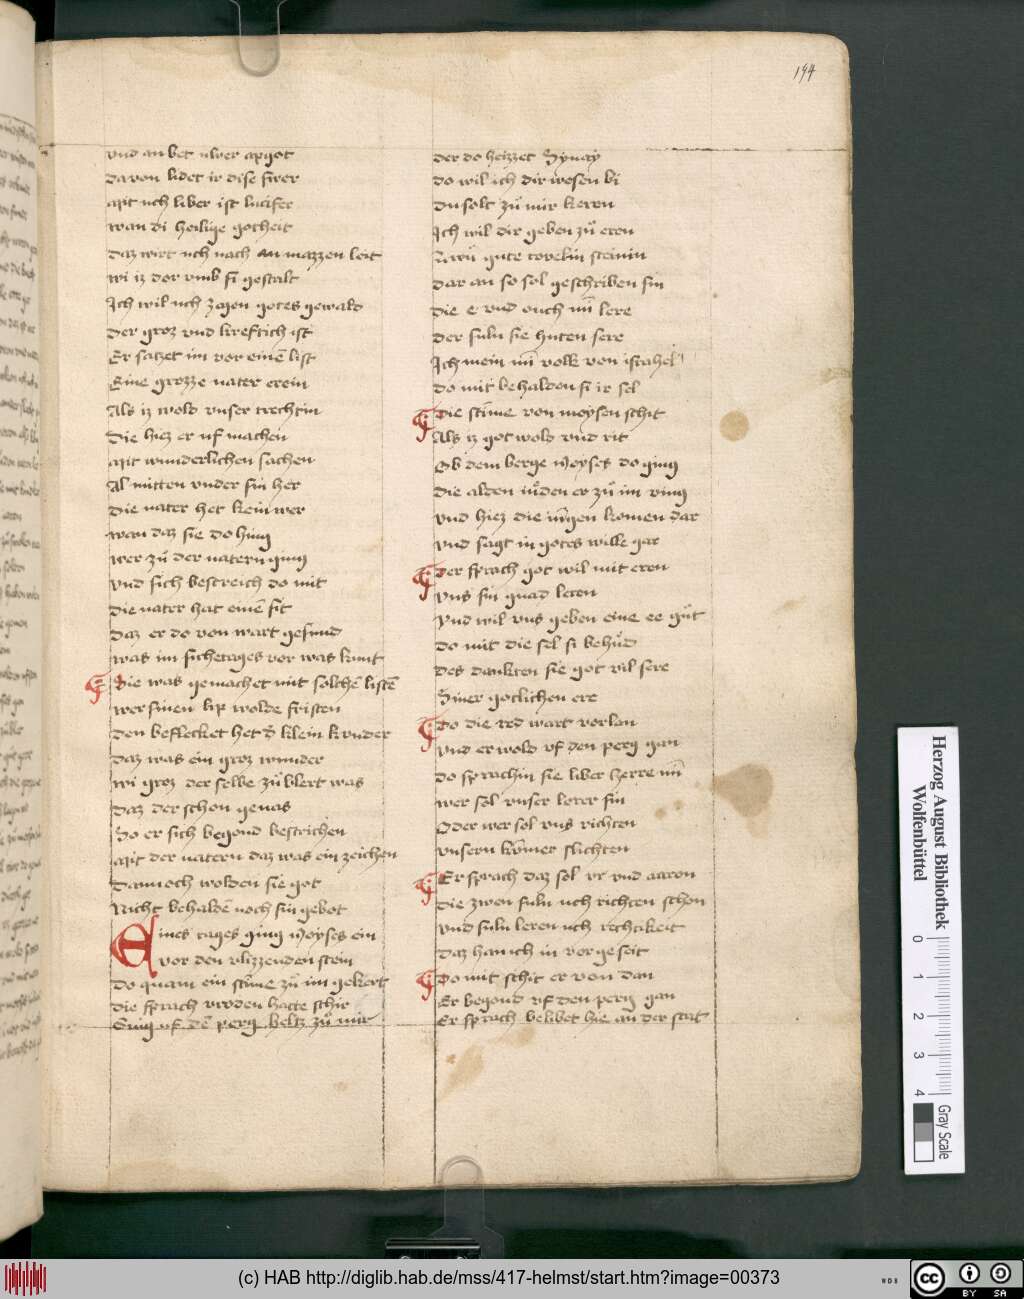 194
vnd an bet uwer apgot
da von lidet ir dise swer
Mit uch liber ist lucifer
wan di heilige gotheit
Daz wirt uch nach an mazzen leit
wi iz der vmb si gestalt
Ich wil uch zagen gotes gewald
Der groz vnd kreftich ist
Er satzet im vor einē list
Eine grozze nater erein
Als iz wold vnser trechtin
Die hiez er uf machen
Mit wunderlichen sachen
Al mitten vnder sin her
Die nater het kein wer
wan daz sie do hing
wer zů der natern ging
vnd sich bestreich do mit
die nater hat einē sit
Daz er do von wart gesund
was im sichetages vor was kunt
Sie was gemachet mit solchē listē
wer sinen lip wolde fristen
Den beflecket het d' klein kunder
Daz was ein groz wunder
wi groz der selbe zů blert was
Daz der schon genas
So er sich begond bestrichen
Mit der natern daz was ein zeichen
Dannoch wolden sie got
Nicht behaldē noch sin gebot
Eines tages ging Moyses ein
vor den vlizzenden stein
Do quam ein stīme zů im gekert
die sprach vroden hatte schir
Ging uf dē perg beltz zů mir
der do heizzet Synay
do wil ich dir wesen bi
Du solt zů mir keren
Ich wil dir geben zů eren
zwů gute tovelin steinin
Dar an so sol geschriben sin
die e vnd ouch min lere
Der suln sie huten sere
Ich mein min volk von israhel
Do mit behalden si ir sel
Die stīme von moysen schit
Als iz got wold vnd rit
Ob dem berge Moyses do ging
die alden iuden er zů im ving
vnd hiez die iūgen komen dar
vnd sagt in gotes wille gar
Der sprach got wil mit eren
vns sin gnad leren
vnd wil vns geben eine ee gůt
do mit die sel si behůd
Des dankten sie got vil sere
Siner gotlichen ere
Do die red wart verlan
vnd er wold uf den perg gan
do sprachin sie liber herre min
wer sol vnser lerer sin
Oder wer sol vns richten
vnsern kūmer slichten
Er sprach daz sol vr vnd aaron
die zwen suln uch richten schon
vnd suln leren uch rechtikeit
Daz han ich in vor geseit
Do mit schit er von dan
Er begond uf den perg gan
Er sprach belibet hie an der stat
Herzog August Bibliothek
Wolfenbüttel
0 1 2 3 4
Gray Scale
(c) HAB http://diglib.hab.de/mss/417-helmst/start.htm?image=00373
WDB
cc BY SA